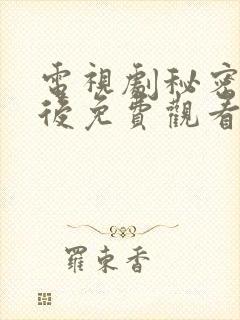 電視劇秘密
後免費觀看
羅東香